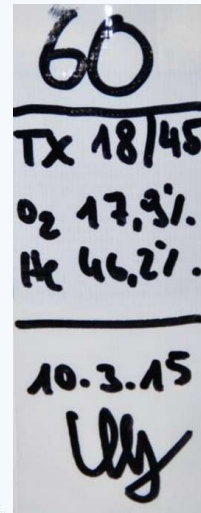 60
TX 18/45
O₂ 17,9%.
He 46,2%.
10.3.15